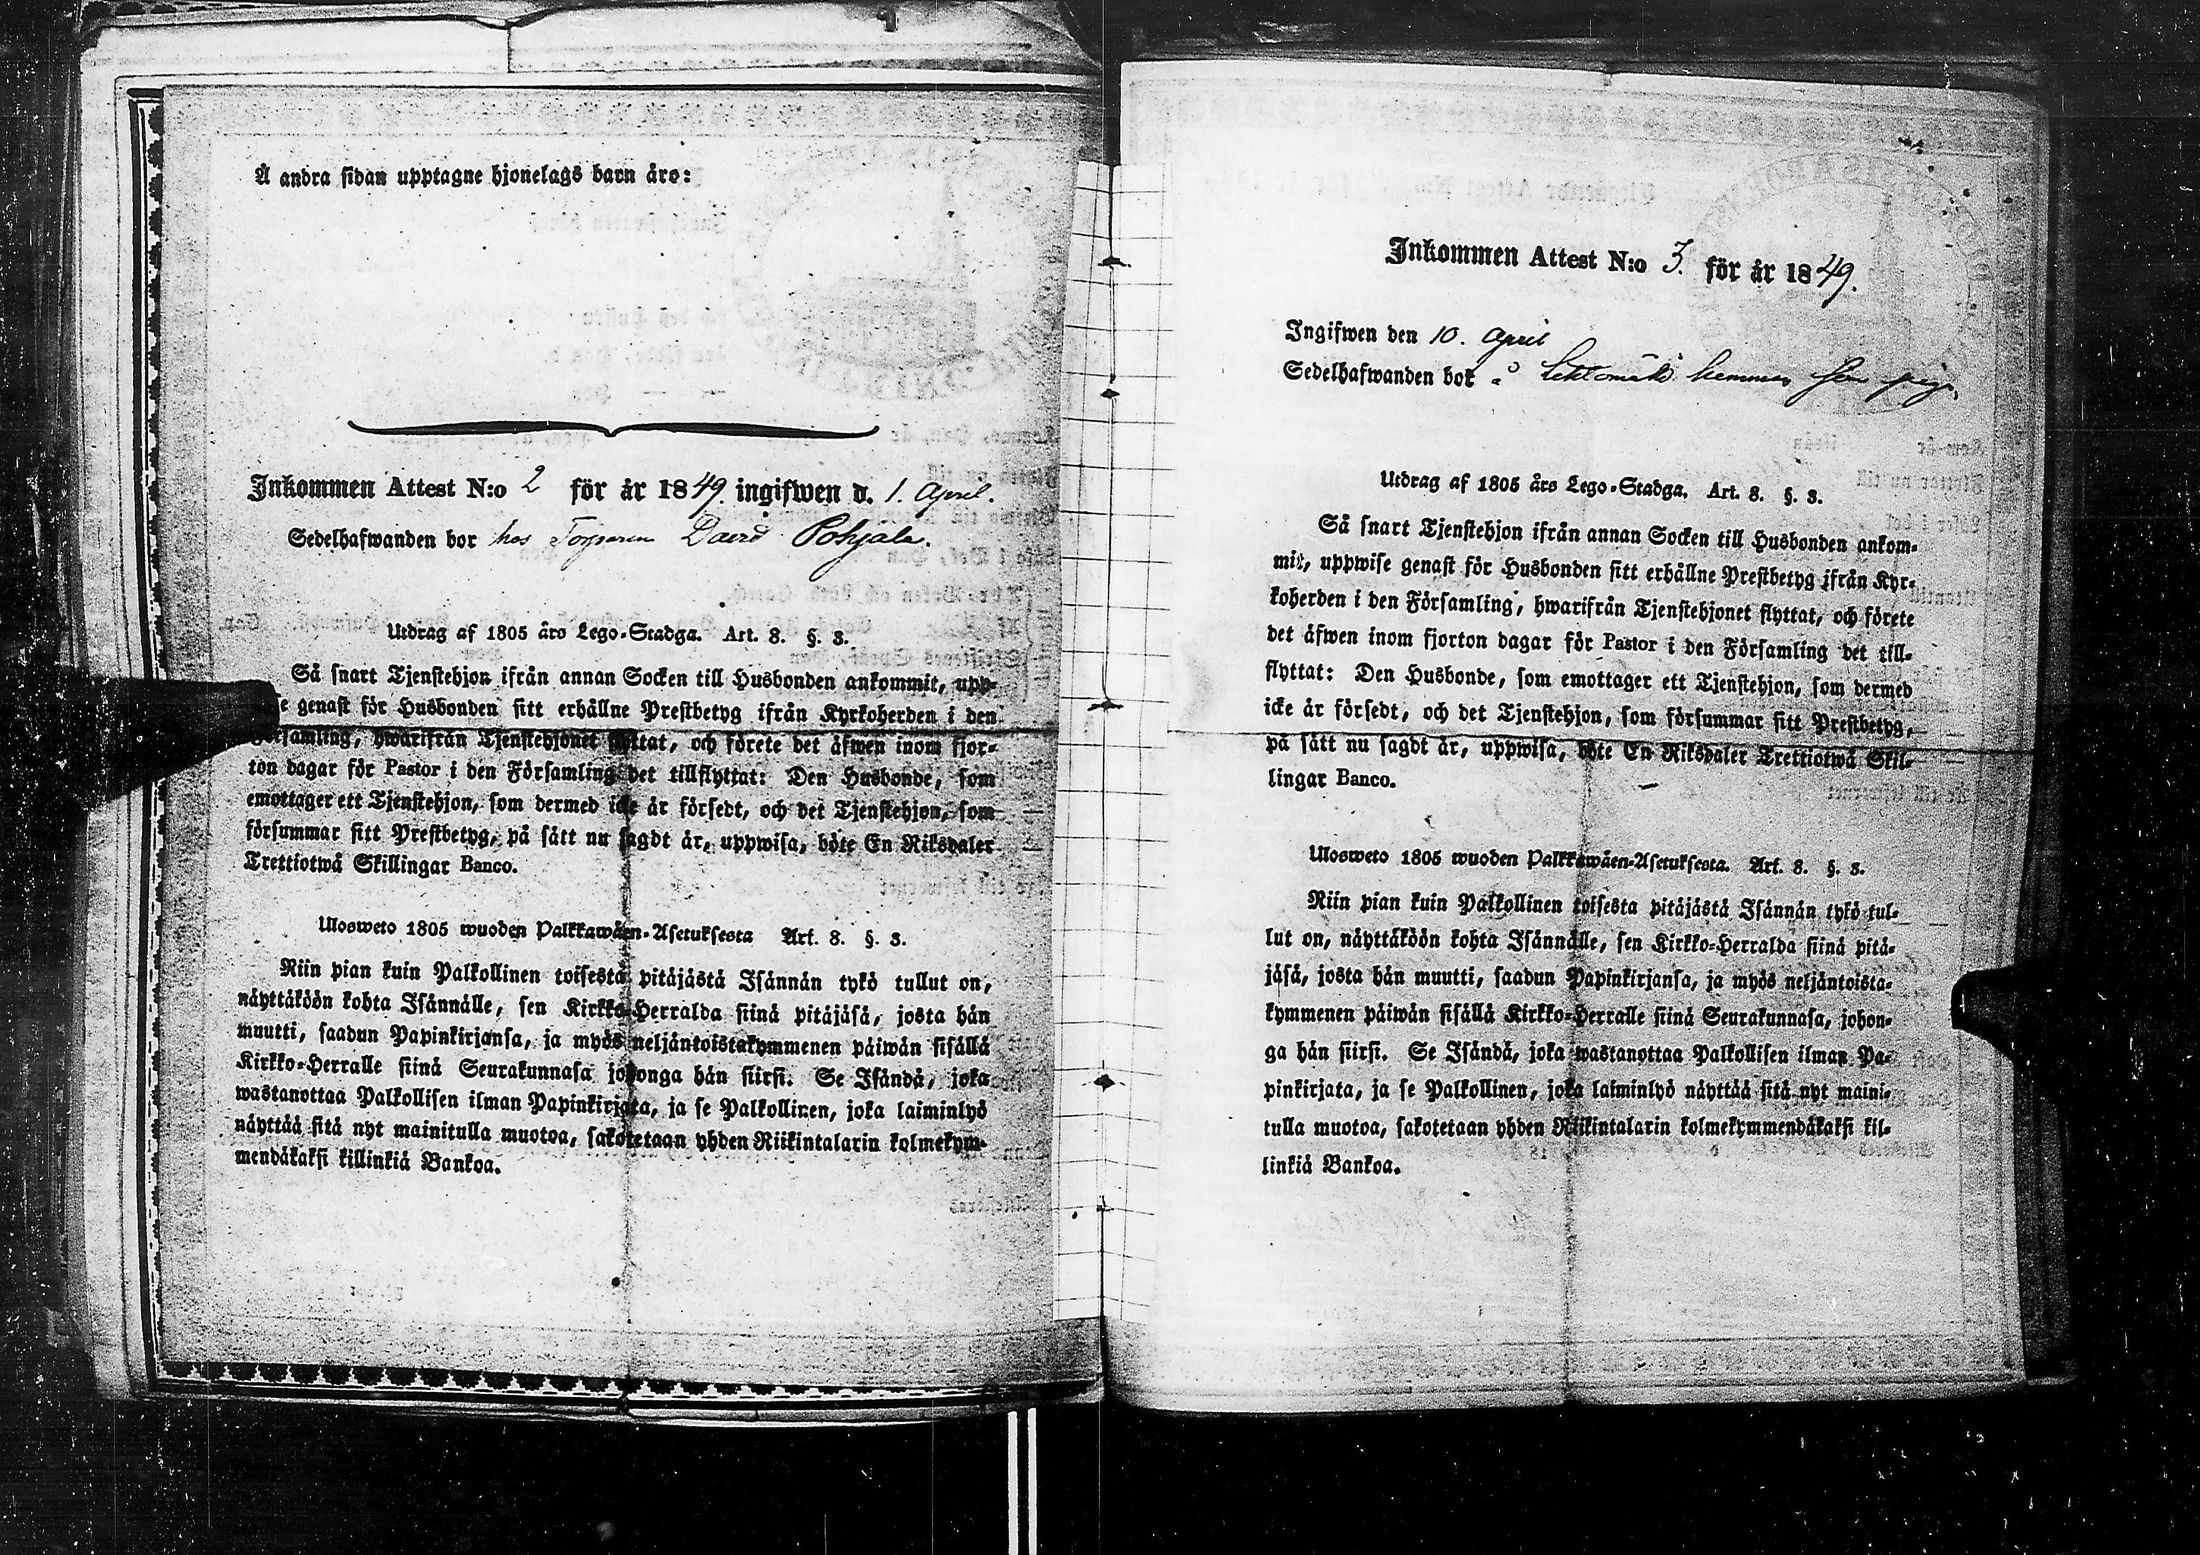 Å andra sidan upptagne hjonelags barn äro:
Inkommen Attest N:o 2 för år 1849. ingifwen d. 1. April.
Sedelhafwanden bor hos Torparen David Pohjala.
Utdrag af 1805 års Lego-Stadga. Art. 8. §. 3.
Så snart Tjenstehjon ifrån annan Socken till Husbonden ankommit, upp-
genast för Husbonden sitt erhållne Prestbetyg ifrån Kyrkoherden i den
Församling, hwarifrån Tjenstehjonet flyttat, och förete det äfwen inom fjor-
ton dagar för Pastor i den Församling det tillflyttat: Den Husbonde, som
emottager ett Tjenstehjon, som dermed icke är försedt, och det Tjenstehjon, som
försummar sitt Prestbetyg, på sätt nu sagdt är, uppwisa, böte En Riksdaler
Trettiotwå Skillingar Banco.
Ulosweto 1805 wuoden Palkkawäen-Asetuksesta Art. 8. §. 3.
Niin pian kuin Palkollinen toisesta pitäjästä Isännän tykö tullut on,
näyttäköön kohta Isännälle, sen Kirkko-Herralda siinä pitäjäsä, josta hän
muutti, saadun Papinkirjansa, ja myös neljäntoistakymmenen päiwän sisällä
Kirkko-Herralle siinä Seurakunnasa johonga hän siirsi. Se Isändä, joka
wastanottaa Palkollisen ilman Papinkirjata, ja se Palkollinen, joka laiminlyö
näyttää sitä nyt mainitulla muotoa, sakotetaan yhden Riikintalarin kolmekym-
mendäkaksi killinkiä Bankoa.
Inkommen Attest N:o 3. för år 1849.
Ingifwen den 10. April
Sedelhafwanden bor å hemman som piga
Utdrag af 1805 års Lego-Stadga. Art. 8. §. 3.
Så snart Tjenstehjon ifrån annan Socken till Husbonden ankom-
mit, uppwise genast för Husbonden sitt erhållne Prestbetyg ifrån Kyr-
koherden i den Församling, hwarifrån Tjenstehjonet flyttat, och förete
det äfwen inom fjorton dagar för Pastor i den Församling det till-
flyttat: Den Husbonde, som emottager ett Tjenstehjon, som dermed
icke är försedt, och det Tjenstehjon, som försummar sitt Prestbetyg,
på sätt nu sagdt är, uppwisa, böte En Riksdaler Trettiotwå Skil-
lingar Banco.
Ulosweto 1805 wuoden Palkkawäen-Asetuksesta. Art. 8. §. 3.
Niin pian kuin Palkollinen toisesta pitäjästä Isännän tykö tul-
lut on, näyttäköön kohta Isännälle, sen Kirkko-Herralda siinä pitä-
jäsä, josta hän muutti, saadun Papinkirjansa, ja myös neljäntoista-
kymmenen päiwän sisällä Kirkko-Herralle siinä Seurakunnasa, johon-
ga hän siirsi. Se Isändä, joka wastanottaa Palkollisen ilman Pa-
pinkirjata, ja se Palkollinen, joka laiminlyö näyttää sitä nyt maini-
tulla muotoa, sakotetaan yhden Riikintalarin kolmekymmendäkaksi kil-
linkiä Bankoa.